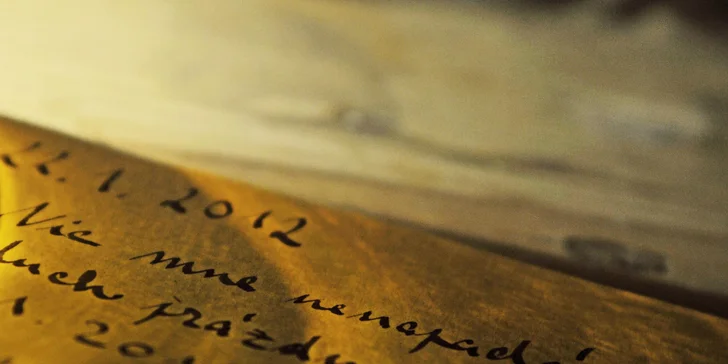 22. 1. 2012
Nic mne nenapadá
duch prázdn
1. 20